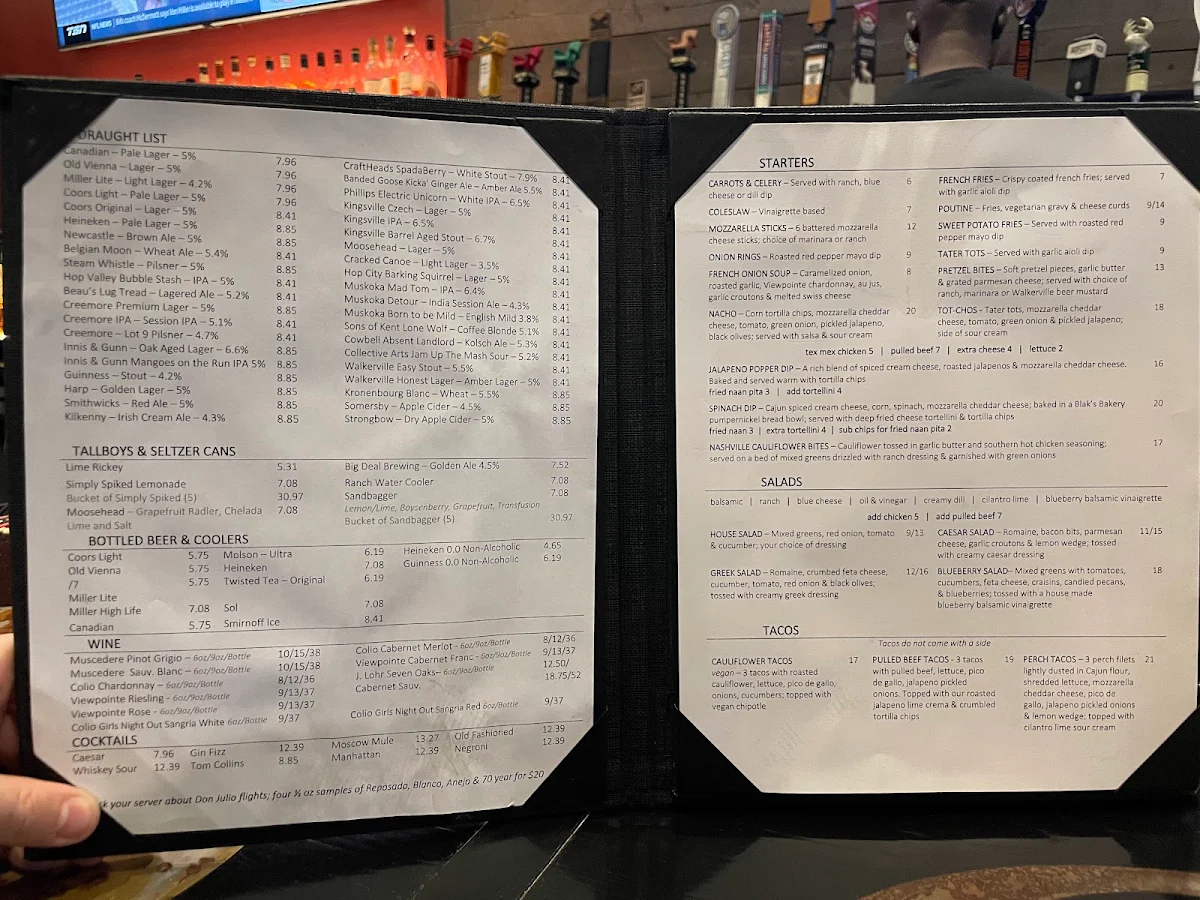 TSN
DRAUGHT LIST
Canadian – Pale Lager – 5% 7.96
Old Vienna – Lager – 5% 7.96
Miller Lite – Light Lager – 4.2% 7.96
Coors Light – Pale Lager – 5% 7.96
Coors Original – Lager – 5% 8.41
Heineken – Pale Lager – 5% 8.85
Newcastle – Brown Ale – 5% 8.85
Belgian Moon – Wheat Ale – 5.4% 8.41
Steam Whistle – Pilsner – 5% 8.85
Hop Valley Bubble Stash – IPA – 5% 8.41
Beau's Lug Tread – Lagered Ale – 5.2% 8.41
Creemore Premium Lager – 5% 8.85
Creemore IPA – Session IPA – 5.1% 8.41
Creemore – Lot 9 Pilsner – 4.7% 8.41
Innis & Gunn – Oak Aged Lager – 6.6% 8.85
Innis & Gunn Mangoes on the Run IPA 5% 8.85
Guinness – Stout – 4.2% 8.85
Harp – Golden Lager – 5% 8.85
Smithwicks – Red Ale – 5% 8.85
Kilkenny – Irish Cream Ale – 4.3% 8.85
CraftHeads SpadaBerry – White Stout – 7.9% 8.41
Banded Goose Kicka' Ginger Ale – Amber Ale 5.5% 8.41
Phillips Electric Unicorn – White IPA – 6.5% 8.41
Kingsville Czech – Lager – 5% 8.41
Kingsville IPA – 6.5% 8.41
Kingsville Barrel Aged Stout – 6.7% 8.41
Moosehead – Lager – 5% 8.41
Cracked Canoe – Light Lager – 3.5% 8.41
Hop City Barking Squirrel – Lager – 5% 8.41
Muskoka Mad Tom – IPA – 6.4% 8.41
Muskoka Detour – India Session Ale – 4.3% 8.41
Muskoka Born to be Mild – English Mild 3.8% 8.41
Sons of Kent Lone Wolf – Coffee Blonde 5.1% 8.41
Cowbell Absent Landlord – Kolsch Ale – 5.3% 8.41
Collective Arts Jam Up The Mash Sour – 5.2% 8.41
Walkerville Easy Stout – 5.5% 8.41
Walkerville Honest Lager – Amber Lager – 5% 8.41
Kronenbourg Blanc – Wheat – 5.5% 8.85
Somersby – Apple Cider – 4.5% 8.85
Strongbow – Dry Apple Cider – 5% 8.85
TALLBOYS & SELTZER CANS
Lime Rickey 5.31
Simply Spiked Lemonade 7.08
Bucket of Simply Spiked (5) 30.97
Moosehead – Grapefruit Radler, Chelada 7.08
Lime and Salt
Big Deal Brewing – Golden Ale 4.5% 7.52
Ranch Water Cooler 7.08
Sandbagger 7.08
Lemon/Lime, Boysenberry, Grapefruit, Transfusion
Bucket of Sandbagger (5) 30.97
BOTTLED BEER & COOLERS
Coors Light 5.75 Molson – Ultra 6.19 Heineken 0.0 Non-Alcoholic 4.65
Old Vienna 5.75 Heineken 7.08 Guinness 0.0 Non-Alcoholic 6.19
/7 5.75 Twisted Tea – Original 6.19
Miller Lite
Miller High Life 7.08 Sol 7.08
Canadian 5.75 Smirnoff Ice 8.41
WINE
Muscedere Pinot Grigio – 6oz/9oz/Bottle 10/15/38
Muscedere Sauv. Blanc – 6oz/9oz/Bottle 10/15/38
Colio Chardonnay – 6oz/9oz/Bottle 8/12/36
Viewpointe Riesling - 6oz/9oz/Bottle 9/13/37
Viewpointe Rose - 6oz/9oz/Bottle 9/13/37
Colio Girls Night Out Sangria White 6oz/9oz/Bottle 9/37
Colio Cabernet Merlot - 6oz/9oz/Bottle 8/12/36
Viewpointe Cabernet Franc - 6oz/9oz/Bottle 9/13/37
J. Lohr Seven Oaks– 6oz/9oz/Bottle 12.50/
Cabernet Sauv. 18.75/52
Colio Girls Night Out Sangria Red 6oz/9oz/Bottle 9/37
COCKTAILS
Caesar 7.96 Gin Fizz 12.39 Moscow Mule 13.27 Old Fashioned 12.39
Whiskey Sour 12.39 Tom Collins 8.85 Manhattan 12.39 Negroni 12.39
sk your server about Don Julio flights; four ½ oz samples of Reposado, Blanco, Anejo & 70 year for $20
STARTERS
CARROTS & CELERY – Served with ranch, blue 6
cheese or dill dip
COLESLAW – Vinaigrette based 7
MOZZARELLA STICKS – 6 battered mozzarella 12
cheese sticks; choice of marinara or ranch
ONION RINGS – Roasted red pepper mayo dip 9
FRENCH ONION SOUP – Caramelized onion, 8
roasted garlic, Viewpointe chardonnay, au jus,
garlic croutons & melted swiss cheese
NACHO – Corn tortilla chips, mozzarella cheddar 20
cheese, tomato, green onion, pickled jalapeno,
black olives; served with salsa & sour cream
FRENCH FRIES – Crispy coated french fries; served 7
with garlic aioli dip
POUTINE – Fries, vegetarian gravy & cheese curds 9/14
SWEET POTATO FRIES – Served with roasted red 9
pepper mayo dip
TATER TOTS – Served with garlic aioli dip 9
PRETZEL BITES – Soft pretzel pieces, garlic butter 13
& grated parmesan cheese; served with choice of
ranch, marinara or Walkerville beer mustard
TOT-CHOS - Tater tots, mozzarella cheddar 18
cheese, tomato, green onion & pickled jalapeno;
side of sour cream
tex mex chicken 5 | pulled beef 7 | extra cheese 4 | lettuce 2
JALAPENO POPPER DIP – A rich blend of spiced cream cheese, roasted jalapenos & mozzarella cheddar cheese. 16
Baked and served warm with tortilla chips
fried naan pita 3 | add tortellini 4
SPINACH DIP – Cajun spiced cream cheese, corn, spinach, mozzarella cheddar cheese; baked in a Blak's Bakery 20
pumpernickel bread bowl; served with deep fried cheese tortellini & tortilla chips
fried naan 3 | extra tortellini 4 | sub chips for fried naan pita 2
NASHVILLE CAULIFLOWER BITES – Cauliflower tossed in garlic butter and southern hot chicken seasoning; 17
served on a bed of mixed greens drizzled with ranch dressing & garnished with green onions
SALADS
balsamic | ranch | blue cheese | oil & vinegar | creamy dill | cilantro lime | blueberry balsamic vinaigrette
add chicken 5 | add pulled beef 7
HOUSE SALAD – Mixed greens, red onion, tomato 9/13
& cucumber; your choice of dressing
CAESAR SALAD – Romaine, bacon bits, parmesan 11/15
cheese, garlic croutons & lemon wedge; tossed
with creamy caesar dressing
GREEK SALAD – Romaine, crumbed feta cheese, 12/16
cucumber, tomato, red onion & black olives;
tossed with creamy greek dressing
BLUEBERRY SALAD– Mixed greens with tomatoes, 18
cucumbers, feta cheese, craisins, candied pecans,
& blueberries; tossed with a house made
blueberry balsamic vinaigrette
TACOS
Tacos do not come with a side
CAULIFLOWER TACOS 17
vegan – 3 tacos with roasted
cauliflower, lettuce, pico de gallo,
onions, cucumbers; topped with
vegan chipotle
PULLED BEEF TACOS - 3 tacos 19
with pulled beef, lettuce, pico
de gallo, jalapeno pickled
onions. Topped with our roasted
jalapeno lime crema & crumbled
tortilla chips
PERCH TACOS – 3 perch filets 21
lightly dusted in Cajun flour,
shredded lettuce, mozzarella
cheddar cheese, pico de
gallo, jalapeno pickled onions
& lemon wedge; topped with
cilantro lime sour cream